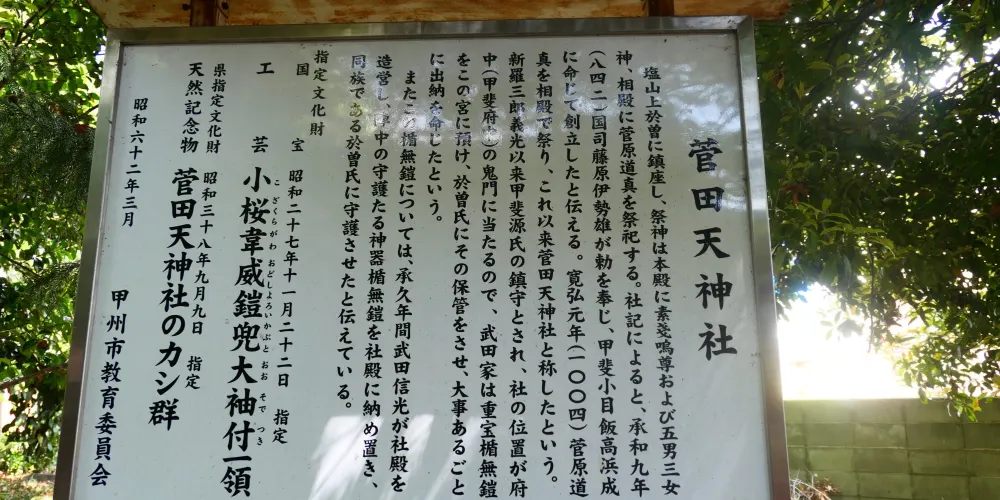 菅田天神社
塩山上於曽に鎮座し、祭神は本殿に素戔嗚尊および五男三女
神、相殿に菅原道真を祭祀する。社記によると、承和九年
(八四二)国司藤原伊勢雄が勅を奉じ、甲斐小目飯高浜成
に命じて創立したと伝える。寛弘元年(一〇〇四)菅原道
真を相殿で祭り、これ以来菅田天神社と称したという。
新羅三郎義光以来甲斐源氏の鎮守とされ、社の位置が府
中(甲斐府中)の鬼門に当たるので、武田家は重宝楯無鎧
をこの宮に預け、於曽氏にその保管をさせ、大事あるごと
に出納を命じたという。
またこの楯無鎧については、承久年間武田信光が社殿を
造営し、中の守護たる神器楯無鎧を社殿に納め置き、
同族である於曽氏に守護させたと伝えている。
指定文化財
国宝 昭和二十七年十一月二十二日 指定
工芸 小桜韋威鎧兜大袖付一領
こざくらがわおどしよろいかぶとおおそでつき
県指定文化財 昭和三十八年九月九日 指定
天然記念物 菅田天神社のカシ群
昭和六十二年三月
甲州市教育委員会